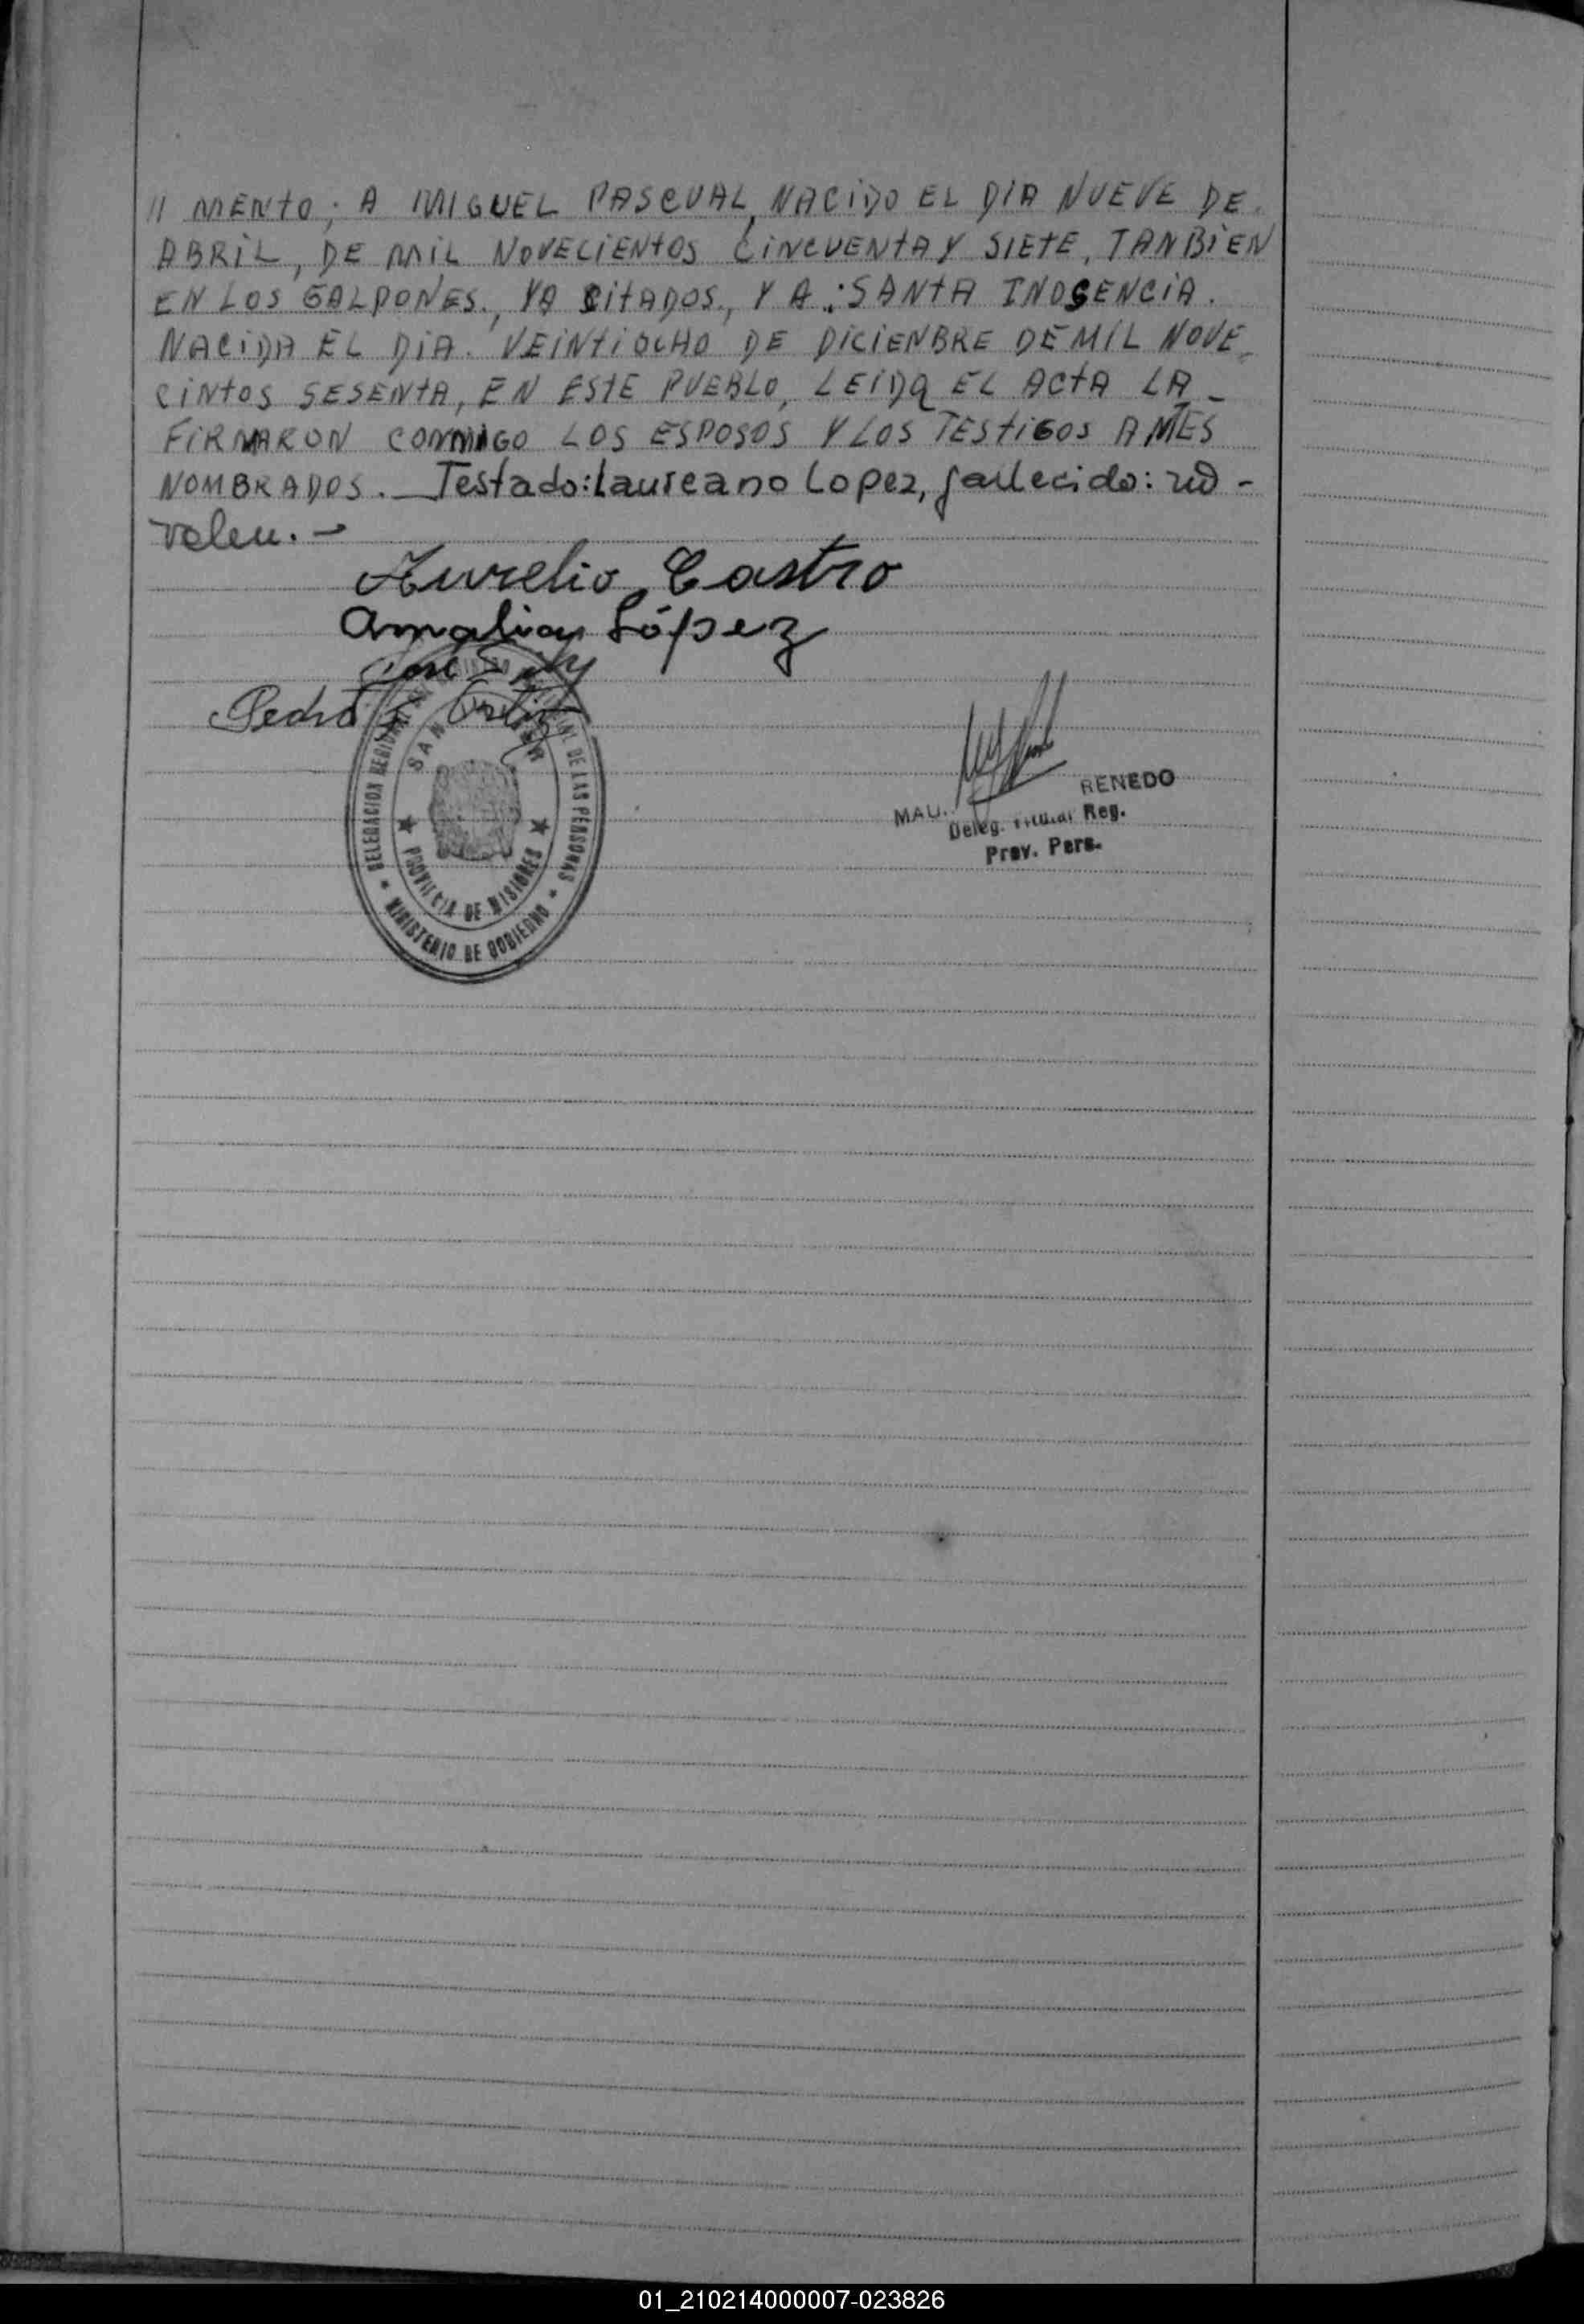 // MENTO; A MIGUEL PASCUAL, NACIDO EL DIA NUEVE DE.
ABRIL, DE MIL NOVECIENTOS CINCUENTA Y SIETE, TANBIEN
EN LOS GALPONES., YA CITADOS., Y A.: SANTA INOSENCIA.
NACIDA EL DIA. VEINTIOCHO DE DICIENBRE DE MIL NOVE_
CINTOS SESENTA, EN ESTE PUEBLO, LEIDA EL ACTA LA_
FIRMARON CONMIGO LOS ESPOSOS Y LOS TESTIGOS ANTES
NOMBRADOS. _Testado: Laureano Lopez, fallecido: no -
valen. -
Aurelio Castro
Amalia López
José
Pedro Ortiz
DELEGACION DE LAS PERSONAS
SAN JAVIER
PROVINCIA DE MISIONES
MINISTERIO DE GOBIERNO
MAU. RENEDO
Deleg. Titular Reg.
Prov. Pers.
01_210214000007-023826